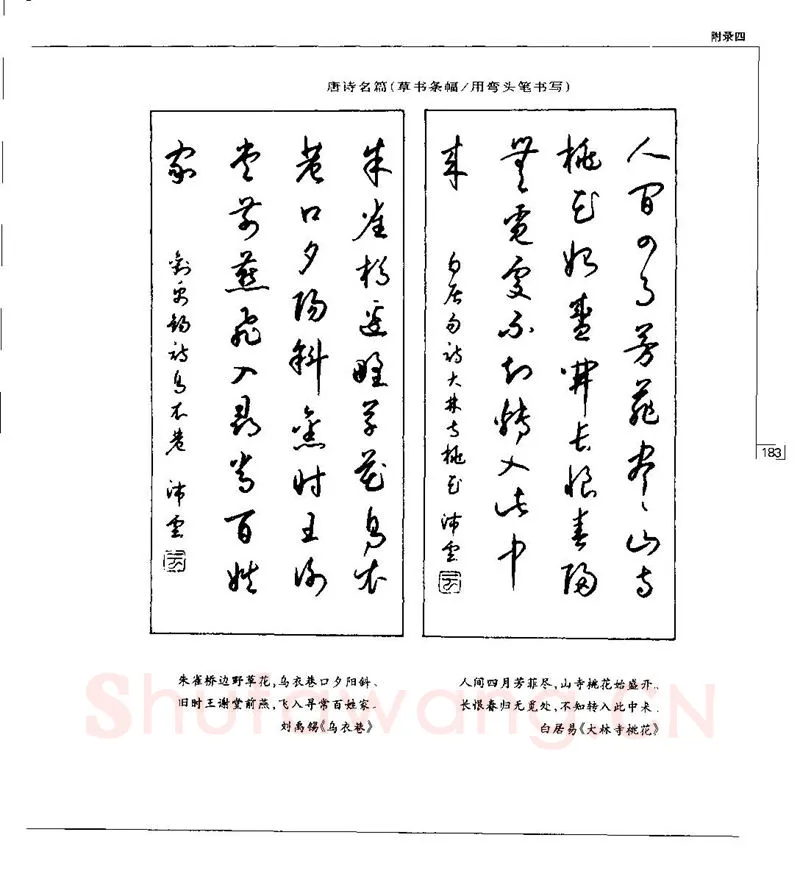 附录四
唐诗名篇(草书条幅/用弯头笔书写)
人間四月芳菲尽山寺
桃花始盛開長恨春歸
無覓處不知轉入此中
来
白居易詩大林寺桃花 沛雲
朱雀橋邊野草花烏衣
巷口夕陽斜舊時王謝
堂前燕飛入尋常百姓
家
劉禹錫詩烏衣巷 沛雲
183
朱雀桥边野草花,乌衣巷口夕阳斜、
旧时王谢堂前燕,飞入寻常百姓家.
刘禹锡《乌衣巷》
人间四月芳菲尽,山寺桃花始盛开..
长恨春归无觅处,不知转入此中来.
白居易《大林寺桃花》
Shufawang.CN